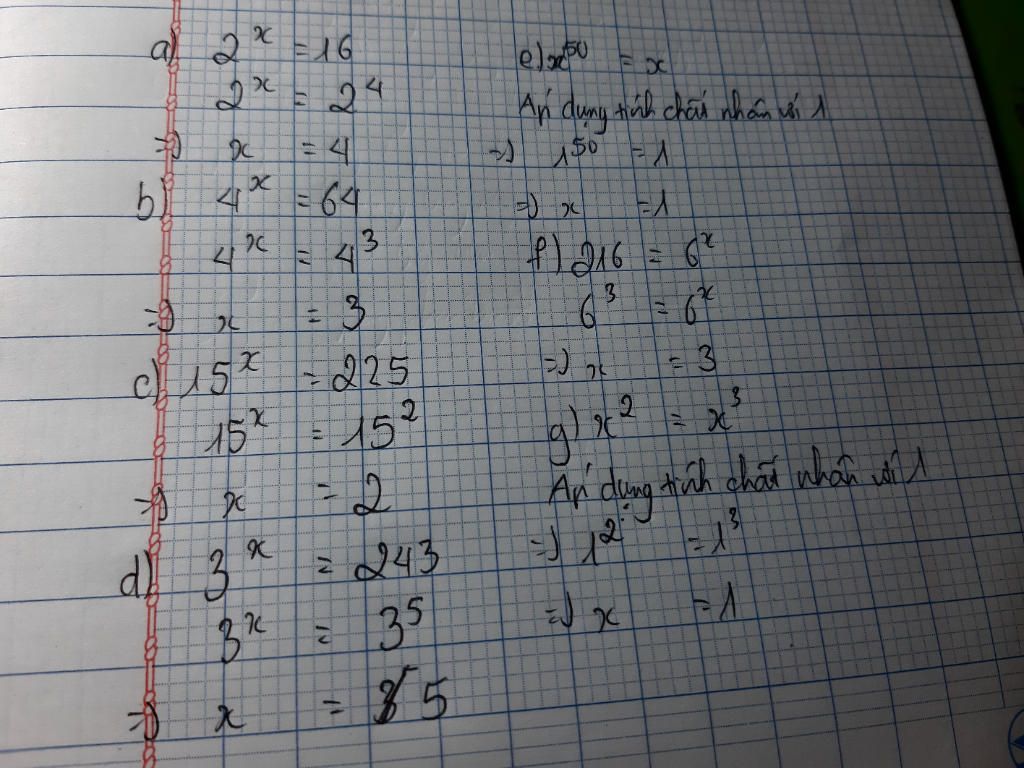 a) 2^x = 16
2^x = 2^4
=) x = 4
b) 4^x = 64
4^x = 4^3
=) x = 3
c) 15^x = 225
15^x = 15^2
=) x = 2
d) 3^x = 243
3^x = 3^5
=) x = 5
e) x^50 = x
Áp dụng tính chất nhân với 1
=) 1^50 = 1
=) x = 1
f) 216 = 6^x
6^3 = 6^x
=) x = 3
g) x^2 = x^3
Áp dụng tính chất nhân với 1
=) 1^2 = 1^3
=) x = 1